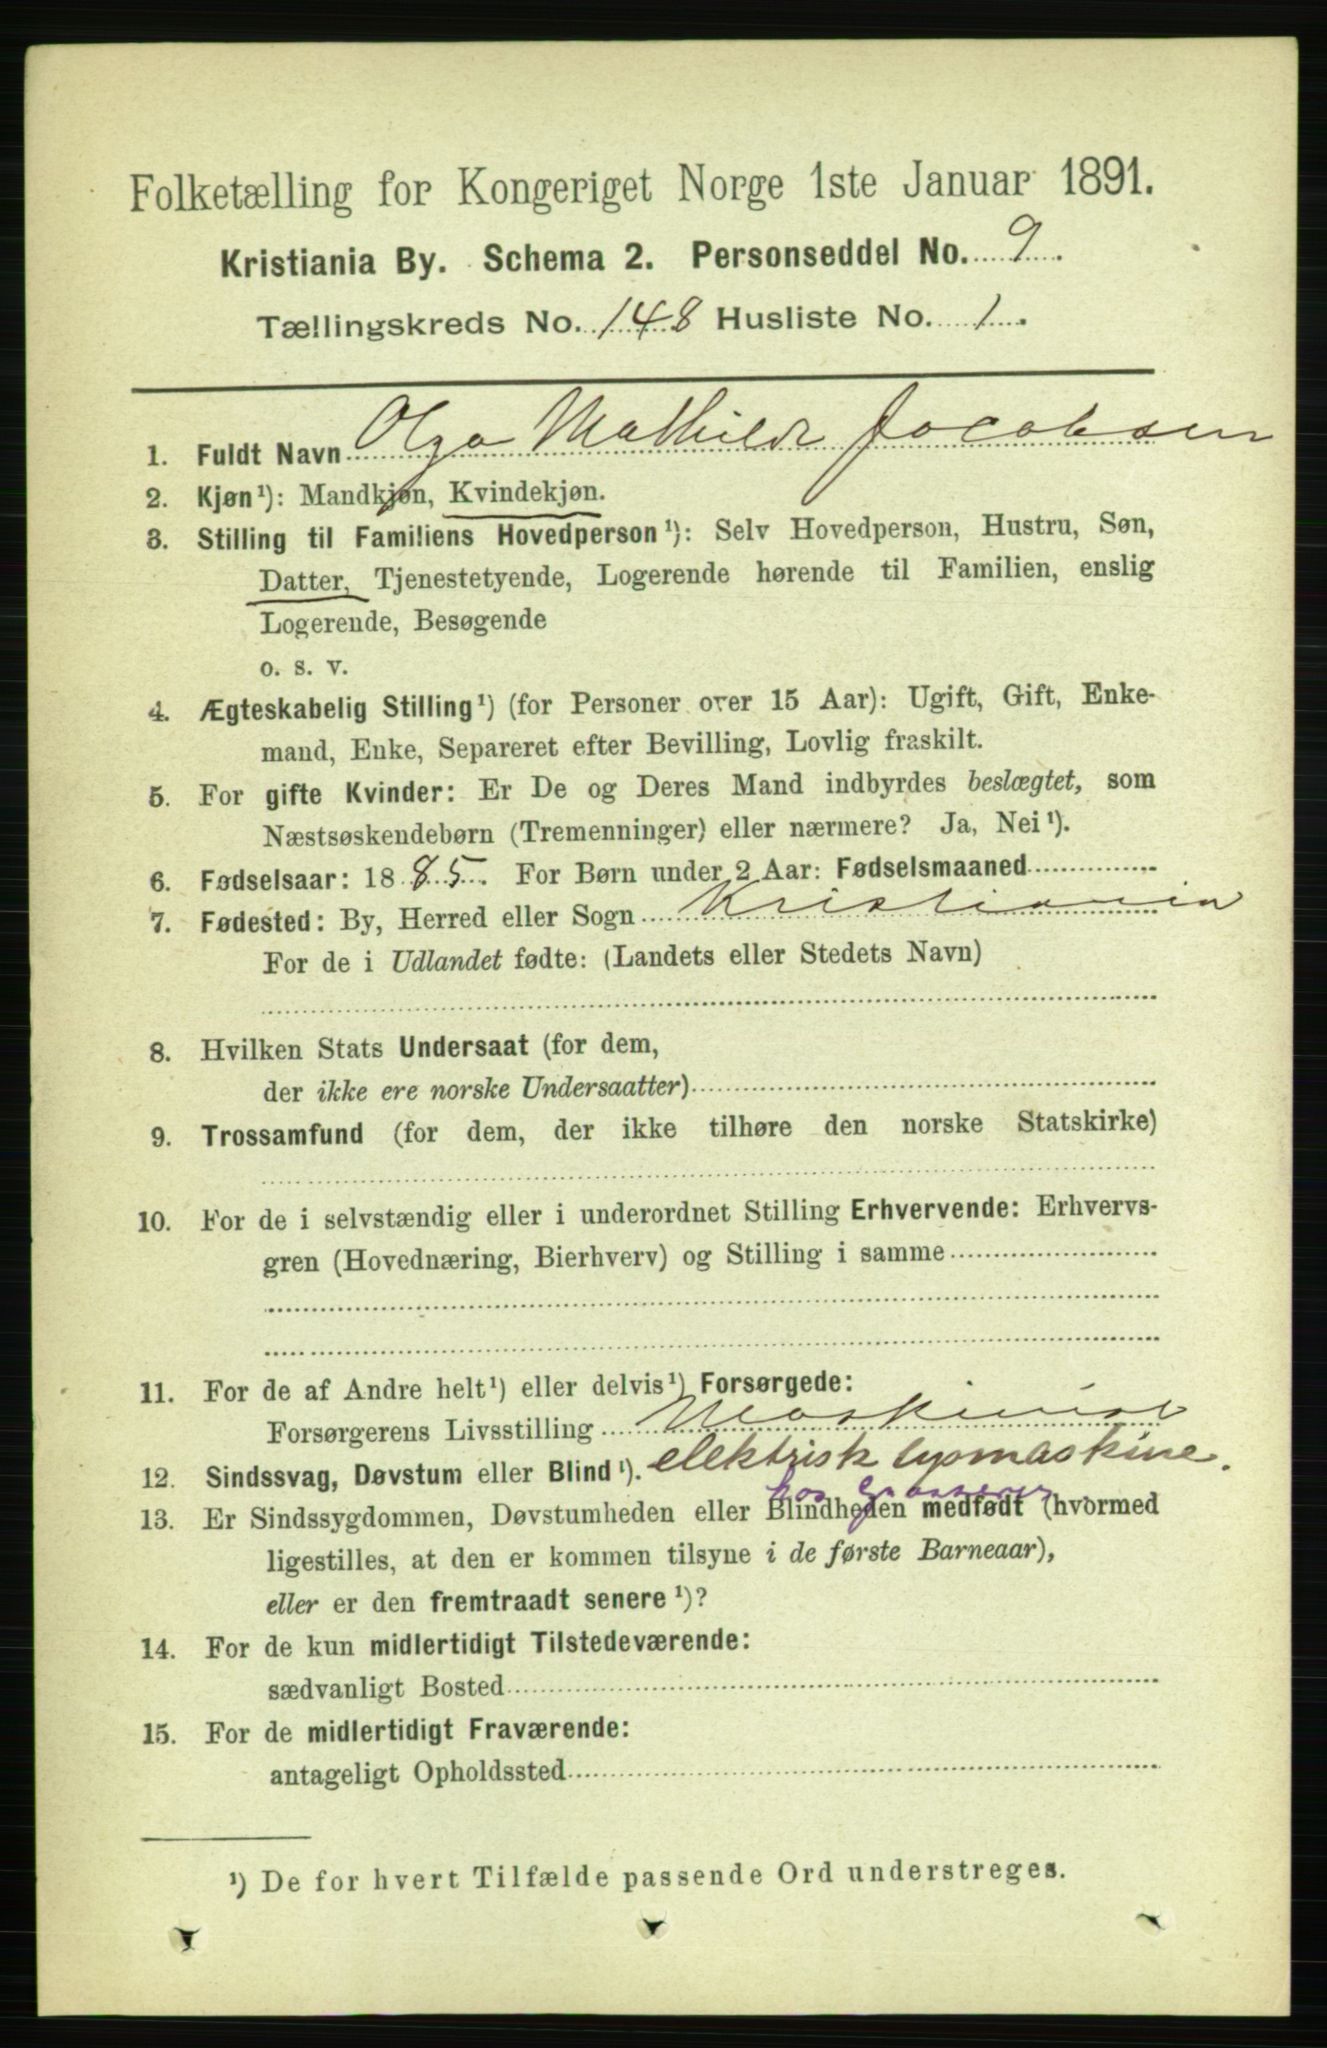 Folketælling for Kongeriget Norge 1ste Januar 1891.
Kristiania By. Schema 2. Personseddel No. 9.
Tællingskreds No. 148 Husliste No. 1.
1. Fuldt Navn Olga Mathilde Jacobsen
2. Kjøn¹): Mandkjøn, Kvindekjøn.
3. Stilling til Familiens Hovedperson¹): Selv Hovedperson, Hustru, Søn,
Datter, Tjenestetyende, Logerende hørende til Familien, enslig
Logerende, Besøgende
o. s. v.
4. Ægteskabelig Stilling¹) (for Personer over 15 Aar): Ugift, Gift, Enke-
mand, Enke, Separeret efter Bevilling, Lovlig fraskilt.
5. For gifte Kvinder: Er De og Deres Mand indbyrdes beslægtet, som
Næstsøskendebørn (Tremenninger) eller nærmere? Ja, Nei¹).
6. Fødselsaar: 1885. For Børn under 2 Aar: Fødselsmaaned
7. Fødested: By, Herred eller Sogn Kristiania
For de i Udlandet fødte: (Landets eller Stedets Navn)
8. Hvilken Stats Undersaat (for dem,
der ikke ere norske Undersaatter)
9. Trossamfund (for dem, der ikke tilhøre den norske Statskirke)
10. For de i selvstændig eller i underordnet Stilling Erhvervende: Erhvervs-
gren (Hovednæring, Bierhverv) og Stilling i samme
11. For de af Andre helt¹) eller delvis¹) Forsørgede:
Forsørgerens Livsstilling Maskinist
elektrisk lysmaskine.
12. Sindssvag, Døvstum eller Blind¹).
hos
13. Er Sindssygdommen, Døvstumheden eller Blindheden medfødt (hvormed
ligestilles, at den er kommen tilsyne i de første Barneaar),
eller er den fremtraadt senere¹)?
14. For de kun midlertidigt Tilstedeværende:
sædvanligt Bosted
15. For de midlertidigt Fraværende:
antageligt Opholdssted
¹) De for hvert Tilfælde passende Ord understreges.